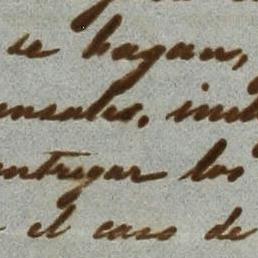 se hagan,
ensales, incl
entregar los
el caso de